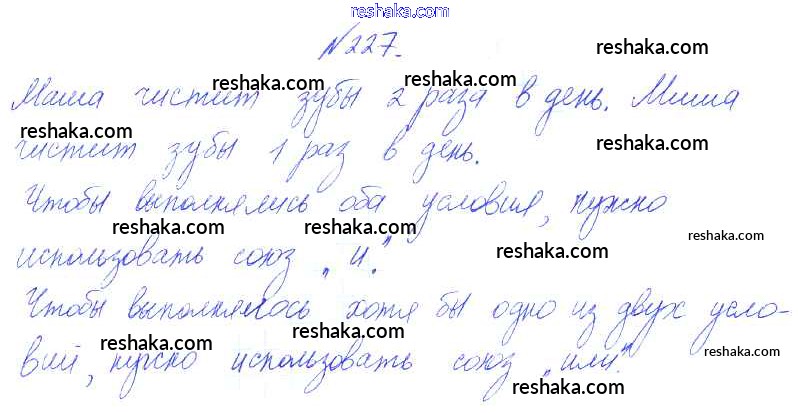 reshaka.com
№227.
reshaka.com
reshaka.com
reshaka.com
Маша чистит зубы 2 раза в день. Миша
reshaka.com
reshaka.com
чистит зубы 1 раз в день.
Чтобы выполнялись оба условия, нужно
reshaka.com
reshaka.com
reshaka.com
использовать союз „и".
reshaka.com
Чтобы выполнялось хотя бы одно из двух усло-
reshaka.com
reshaka.com
вий, нужно использовать союз „или".
reshaka.com
reshaka.com